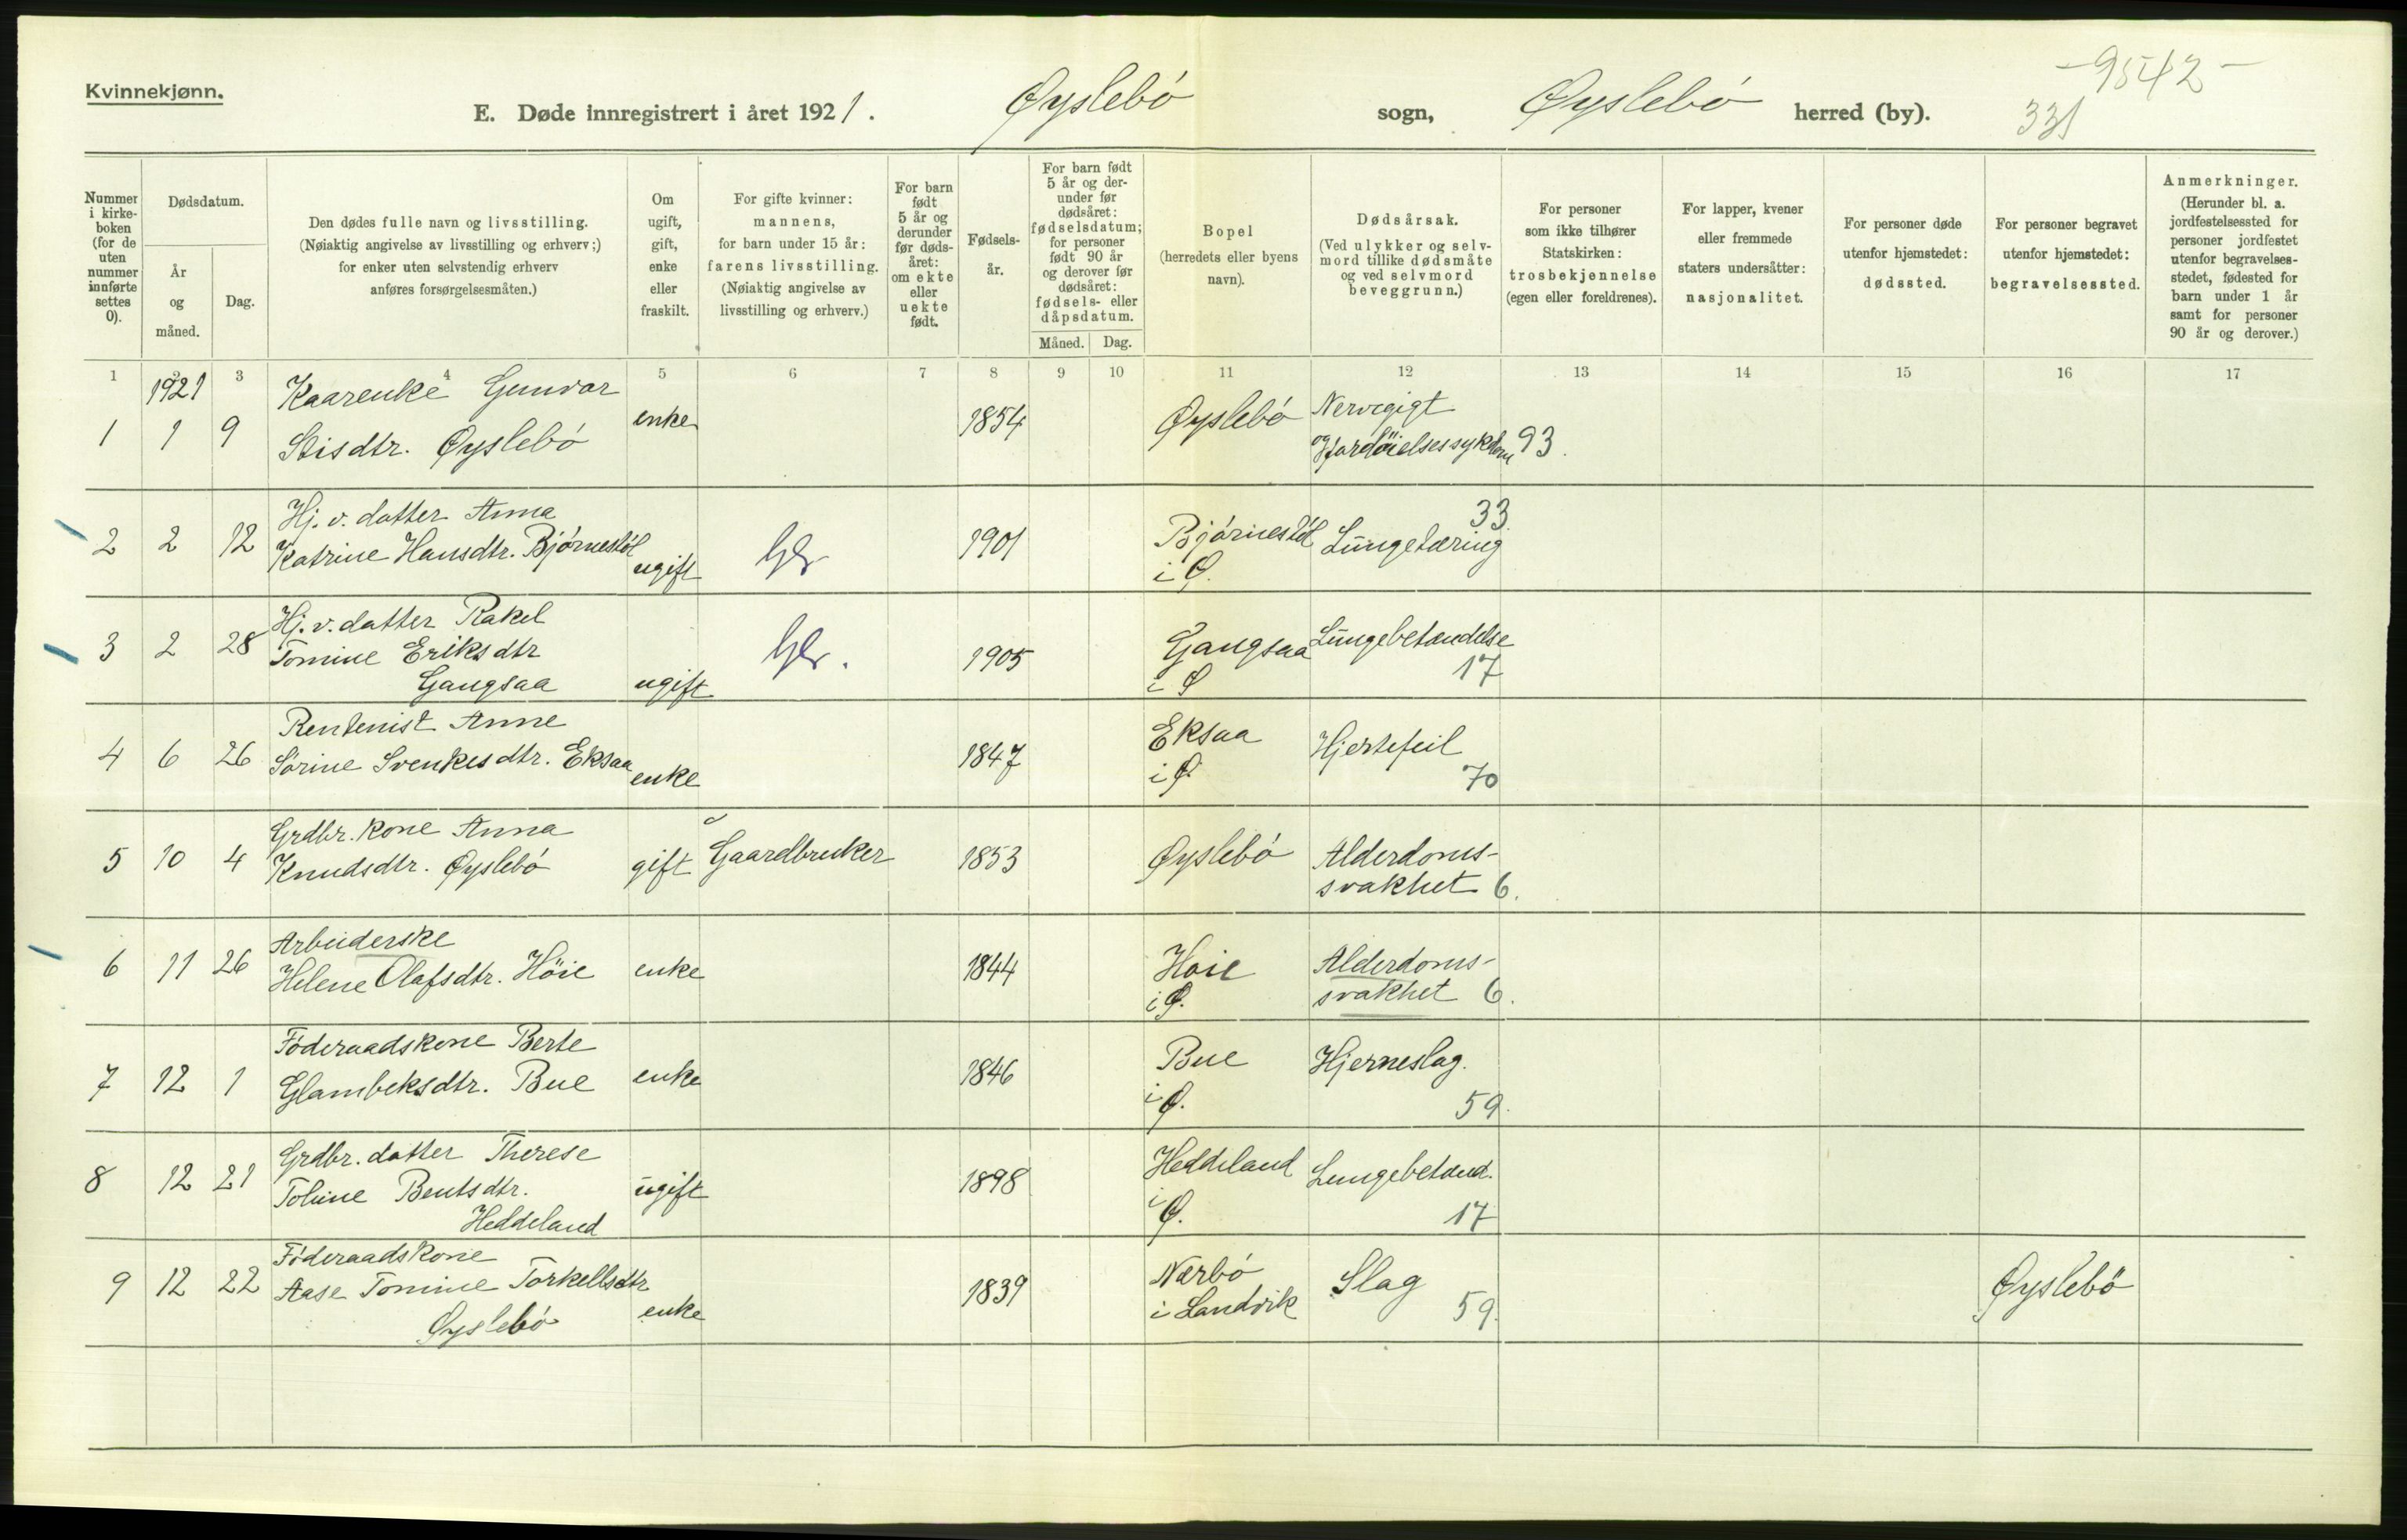 Kvinnekjønn.
E. Døde innregistrert i året 1921. Øyslebö sogn, Øyslebö herred (by).
-9542-
331
Nummer i kirkeboken (for de uten nummer innførte settes 0).
Dødsdatum.
År og måned.
Dag.
Den dødes fulle navn og livsstilling.
(Nøiaktig angivelse av livsstilling og erhverv;)
for enker uten selvstendig erhverv
anføres forsørgelsesmåten.)
Om ugift, gift, enke eller fraskilt.
For gifte kvinner:
mannens,
for barn under 15 år:
farens livsstilling.
(Nøiaktig angivelse av
livsstilling og erhverv.)
For barn født 5 år og derunder før dødsåret: om ekte eller uekte født.
Fødselsår.
For barn født 5 år og derunder før dødsåret: fødselsdatum; for personer født 90 år og derover før dødsåret: fødsels- eller dåpsdatum.
Måned. Dag.
Bopel
(herredets eller byens
navn).
Dødsårsak.
(Ved ulykker og selvmord tillike dødsmåte og ved selvmord beveggrunn.)
For personer
som ikke tilhører
Statskirken:
trosbekjennelse
(egen eller foreldrenes).
For lapper, kvener
eller fremmede
staters undersåtter:
nasjonalitet.
For personer døde
utenfor hjemstedet:
dødssted.
For personer begravet
utenfor hjemstedet:
begravelsessted.
Anmerkninger.
(Herunder bl. a. jordfestelsessted for personer jordfestet utenfor begravelsesstedet, fødested for barn under 1 år samt for personer 90 år og derover.)
1 2 3 4 5 6 7 8 9 10 11 12 13 14 15 16 17
1921
Kaarenke Gunvor
1 1 9 Stisdtr. Øyslebö enke 1854 Øyslebö Nervegigt
og Fordöielsessykdom 93.
Hj. v. datter Anna
2 2 12 Katrine Hansdtr. Björnestöl ugift 1901 Björnestöl Lungetæring 33.
i Ø.
Hj. v. datter Rakel
3 2 28 Tomine Eriksdtr
Gangsaa ugift 1905 Gangsaa Lungebetændelse
i Ø 17
Rentenist Anne
4 6 26 Sörine Svenkesdtr. Eksaa enke 1847 Eksaa Hjertefeil
i Ø. 70
Grdbr. kone Anna
5 10 4 Knudsdtr. Øyslebö gift Gaardbruker 1853 Øyslebö Alderdoms-
svakhet 6.
Arbeiderske
6 11 26 Helene Olafsdtr. Höie enke 1844 Höie Alderdoms-
i Ø. svakhet 6.
Föderaadskone Berte
7 12 1 Glambeksdtr. Bue enke 1846 Bue Hjerneslag.
i Ø. 59.
Grdbr. datter Therese
8 12 21 Toline Bentsdtr.
Heddeland ugift 1898 Heddeland Lungebetænd.
i Ø. 17
Föderaadskone
9 12 22 Aase Tomine Torkellsdtr
Øyslebö enke 1839 Nærbö Slag Øyslebö
i Landvik 59.